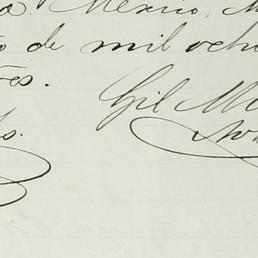 a Mexico, M
o de mil ocho
res.
Gil M
s.